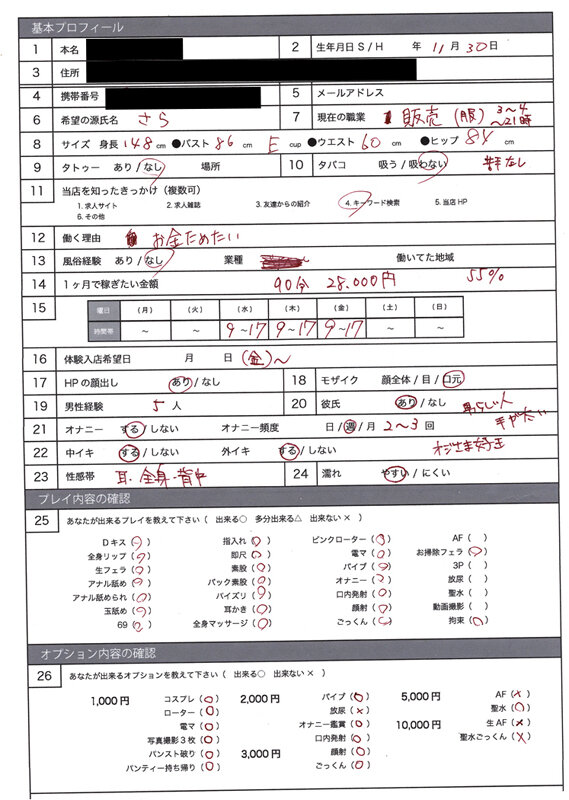 基本プロフィール
1 本名 2 生年月日 S / H 年 11 月 30 日
3 住所
4 携帯番号 5 メールアドレス
6 希望の源氏名 さら 7 現在の職業 販売 (服) 3〜4 〜21時
8 サイズ 身長 148 cm ●バスト 86 cm E cup ●ウエスト 60 cm ●ヒップ 84 cm
9 タトゥー あり / なし 場所 10 タバコ 吸う / 吸わない なし
11 当店を知ったきっかけ(複数可)
1. 求人サイト 2. 求人雑誌 3. 友達からの紹介 4. キーワード検索 5. 当店 HP
6. その他
12 働く理由 お金ためたい
13 風俗経験 あり / なし 業種 働いてた地域
14 1ヶ月で稼ぎたい金額 90分 28.000円 55%
15 曜日 (月) (火) (水) (木) (金) (土) (日)
時間帯 ~ ~ 9~17 9~17 9~17 ~ ~
16 体験入店希望日 月 日 (金)〜
17 HP の顔出し あり / なし 18 モザイク 顔全体 / 目 / 口元
19 男性経験 5 人 20 彼氏 あり / なし
21 オナニー する / しない オナニー頻度 日 / 週 / 月 2〜3 回
22 中イキ する / しない 外イキ する / しない
23 性感帯 耳・全身・背中 24 濡れ やすい / にくい
プレイ内容の確認
25 あなたが出来るプレイを教えて下さい ( 出来る○ 多分出来る△ 出来ない × )
Dキス (○) 指入れ (○) ピンクローター (○) AF ( )
全身リップ (○) 即尺 (○) 電マ (○) お掃除フェラ (○)
生フェラ (○) 素股 (○) バイブ (○) 3P ( )
アナル舐め (○) バック素股 (○) オナニー (○) 放尿 ( )
アナル舐められ (○) パイズリ (○) 口内発射 (○) 聖水 ( )
玉舐め (○) 耳かき (○) 顔射 (○) 動画撮影 ( )
69 (○) 全身マッサージ (○) ごっくん (○) 拘束 (○)
オプション内容の確認
26 あなたが出来るオプションを教えて下さい ( 出来る○ 出来ない × )
1,000円 コスプレ (○) 2,000円 バイブ (○) 5,000円 AF (×)
ローター (○) 放尿 (×) 聖水 (○)
電マ (○) オナニー鑑賞 (○) 10,000円 生AF (×)
写真撮影3枚 (○) 口内発射 (○) 聖水ごっくん (×)
パンスト破り (○) 3,000円 顔射 (○)
パンティー持ち帰り (○) ごっくん (○)